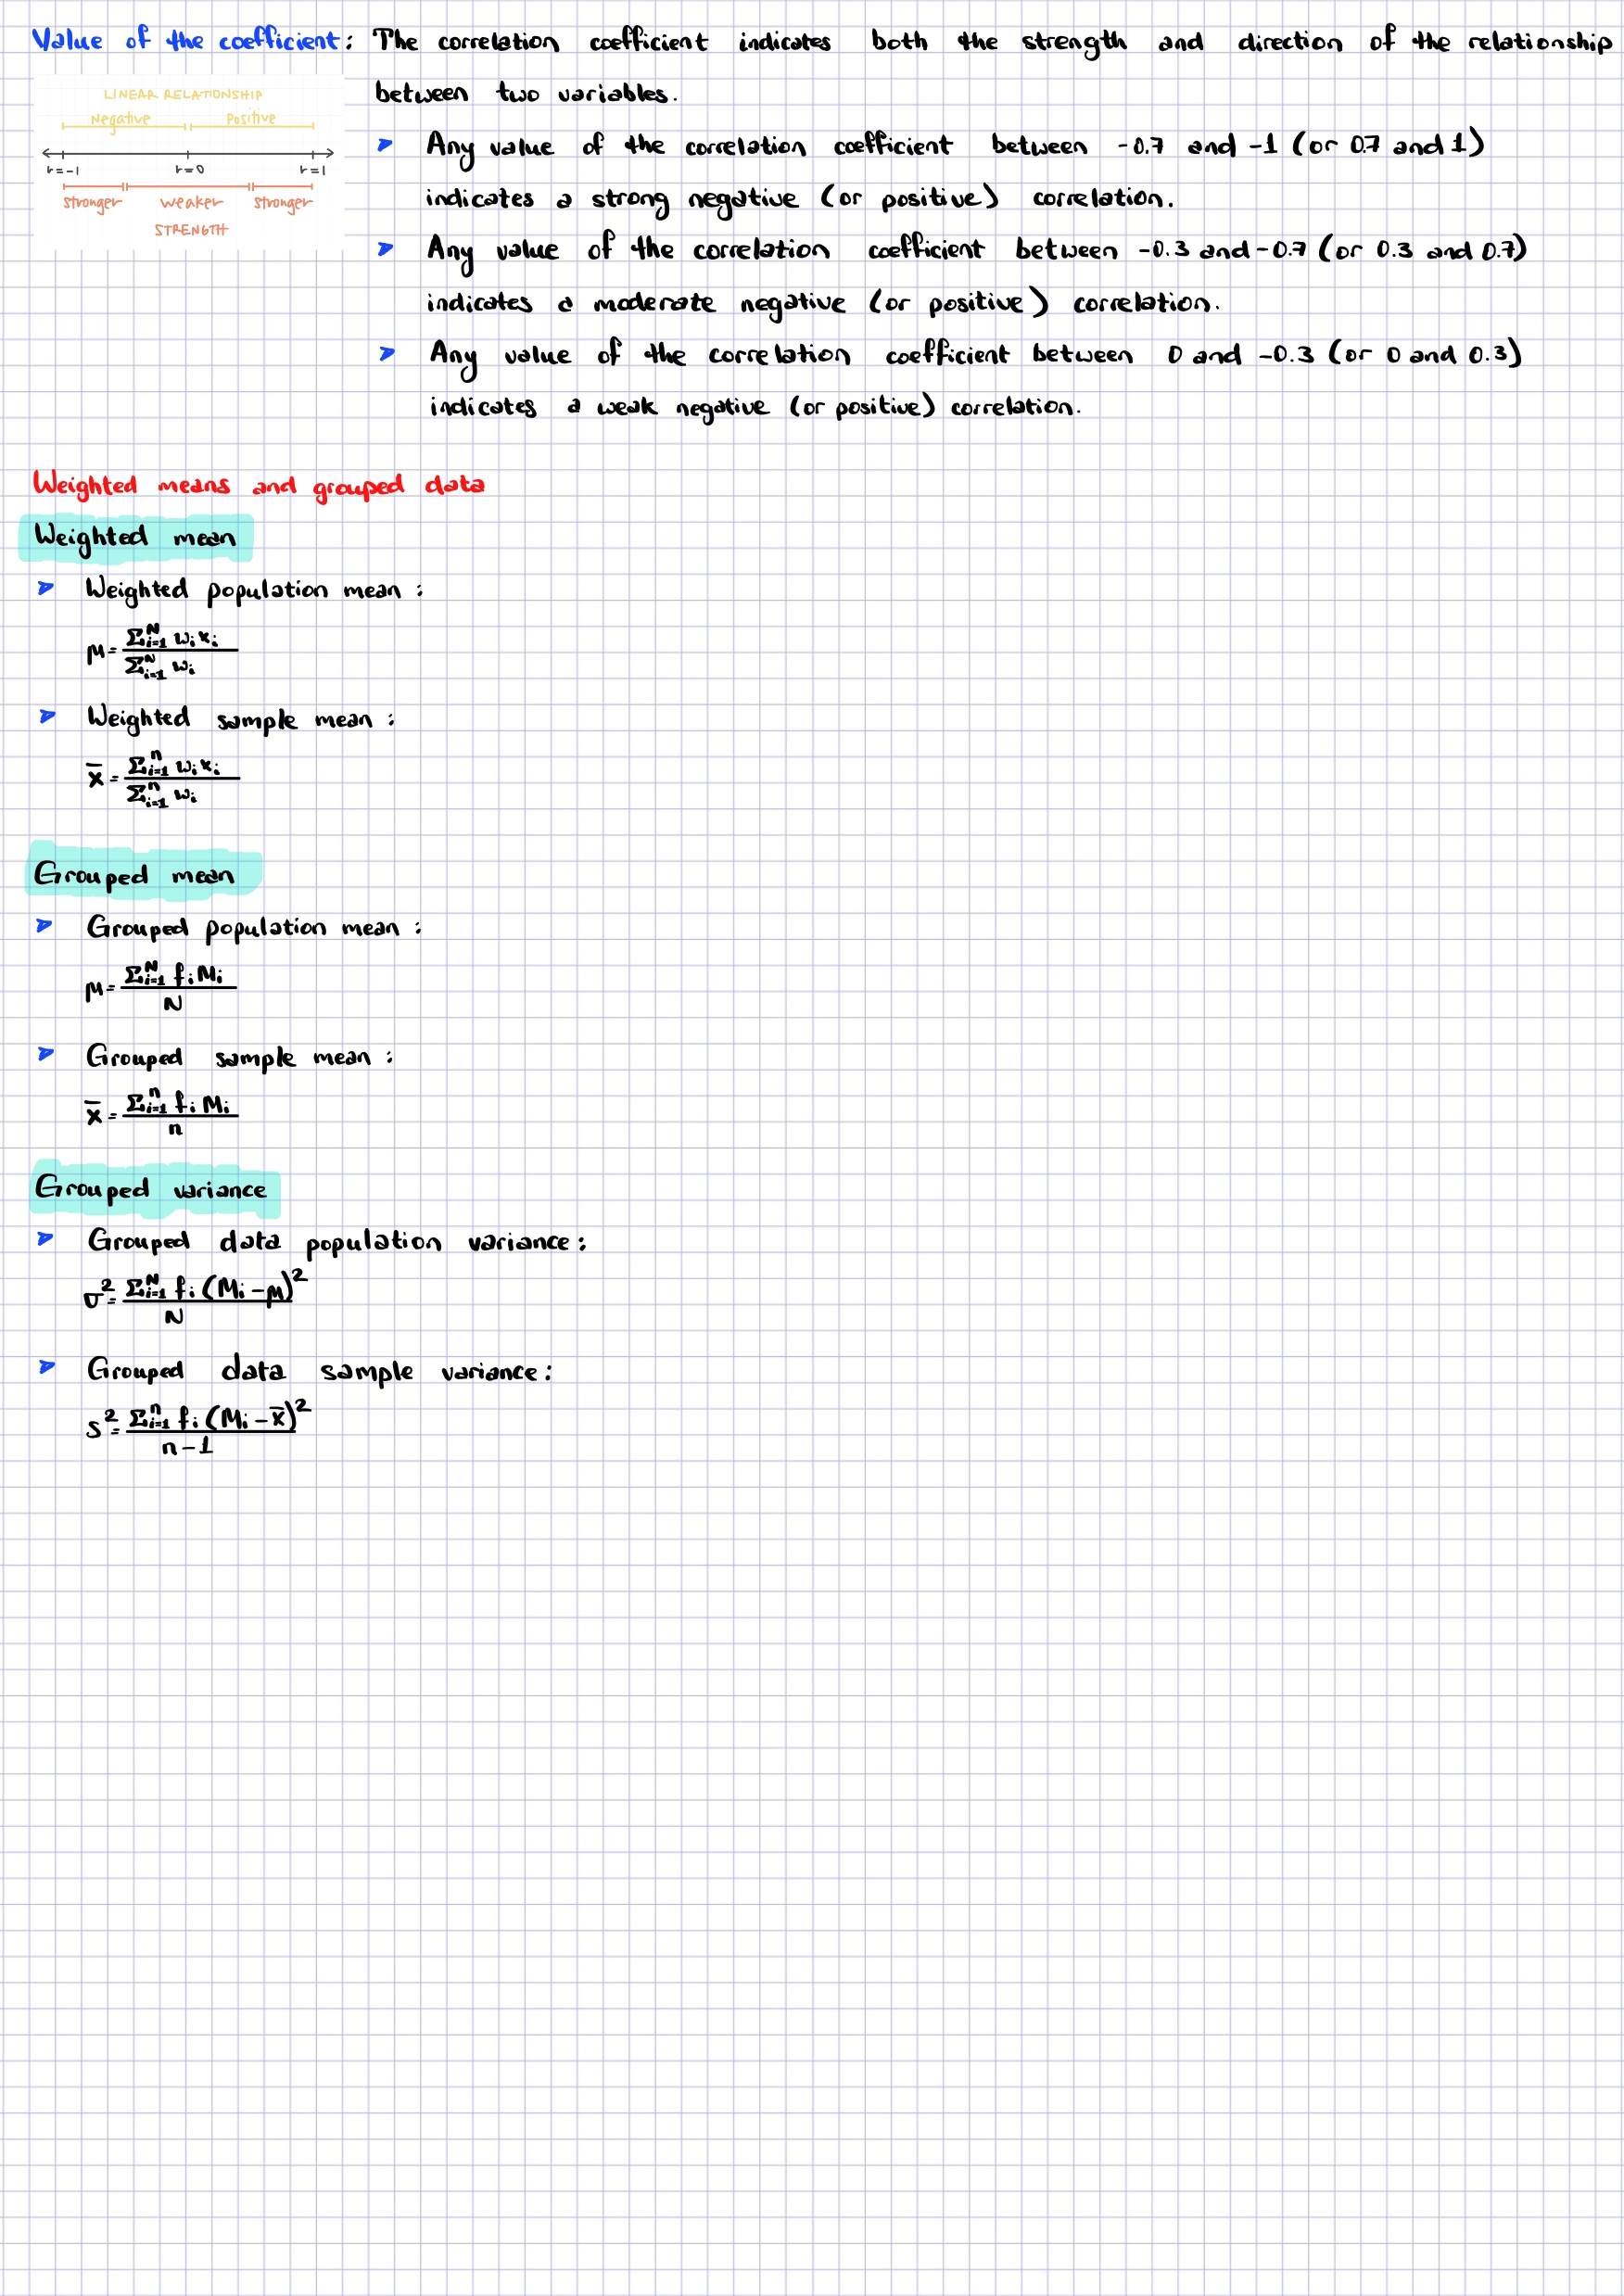 Value of the coefficient: The correlation coefficient indicates both the strength and direction of the relationship
between two variables.
LINEAR RELATIONSHIP
Negative Positive
r=-1 r=0 r=1
Stronger Weaker Stronger
STRENGTH
➤ Any value of the correlation coefficient between -0.7 and -1 (or 0.7 and 1)
indicates a strong negative (or positive) correlation.
➤ Any value of the correlation coefficient between -0.3 and -0.7 (or 0.3 and 0.7)
indicates a moderate negative (or positive) correlation.
➤ Any value of the correlation coefficient between 0 and -0.3 (or 0 and 0.3)
indicates a weak negative (or positive) correlation.
Weighted means and grouped data
Weighted mean
➤ Weighted population mean:
μ = \frac{Σ_{i=1}^{N} w_i x_i}{Σ_{i=1}^{N} w_i}
➤ Weighted sample mean:
x̄ = \frac{Σ_{i=1}^{n} w_i x_i}{Σ_{i=1}^{n} w_i}
Grouped mean
➤ Grouped population mean:
μ = \frac{Σ_{i=1}^{N} f_i M_i}{N}
➤ Grouped sample mean:
x̄ = \frac{Σ_{i=1}^{n} f_i M_i}{n}
Grouped variance
➤ Grouped data population variance:
σ² = \frac{Σ_{i=1}^{N} f_i (M_i - μ)²}{N}
➤ Grouped data sample variance:
s² = \frac{Σ_{i=1}^{n} f_i (M_i - x̄)²}{n-1}